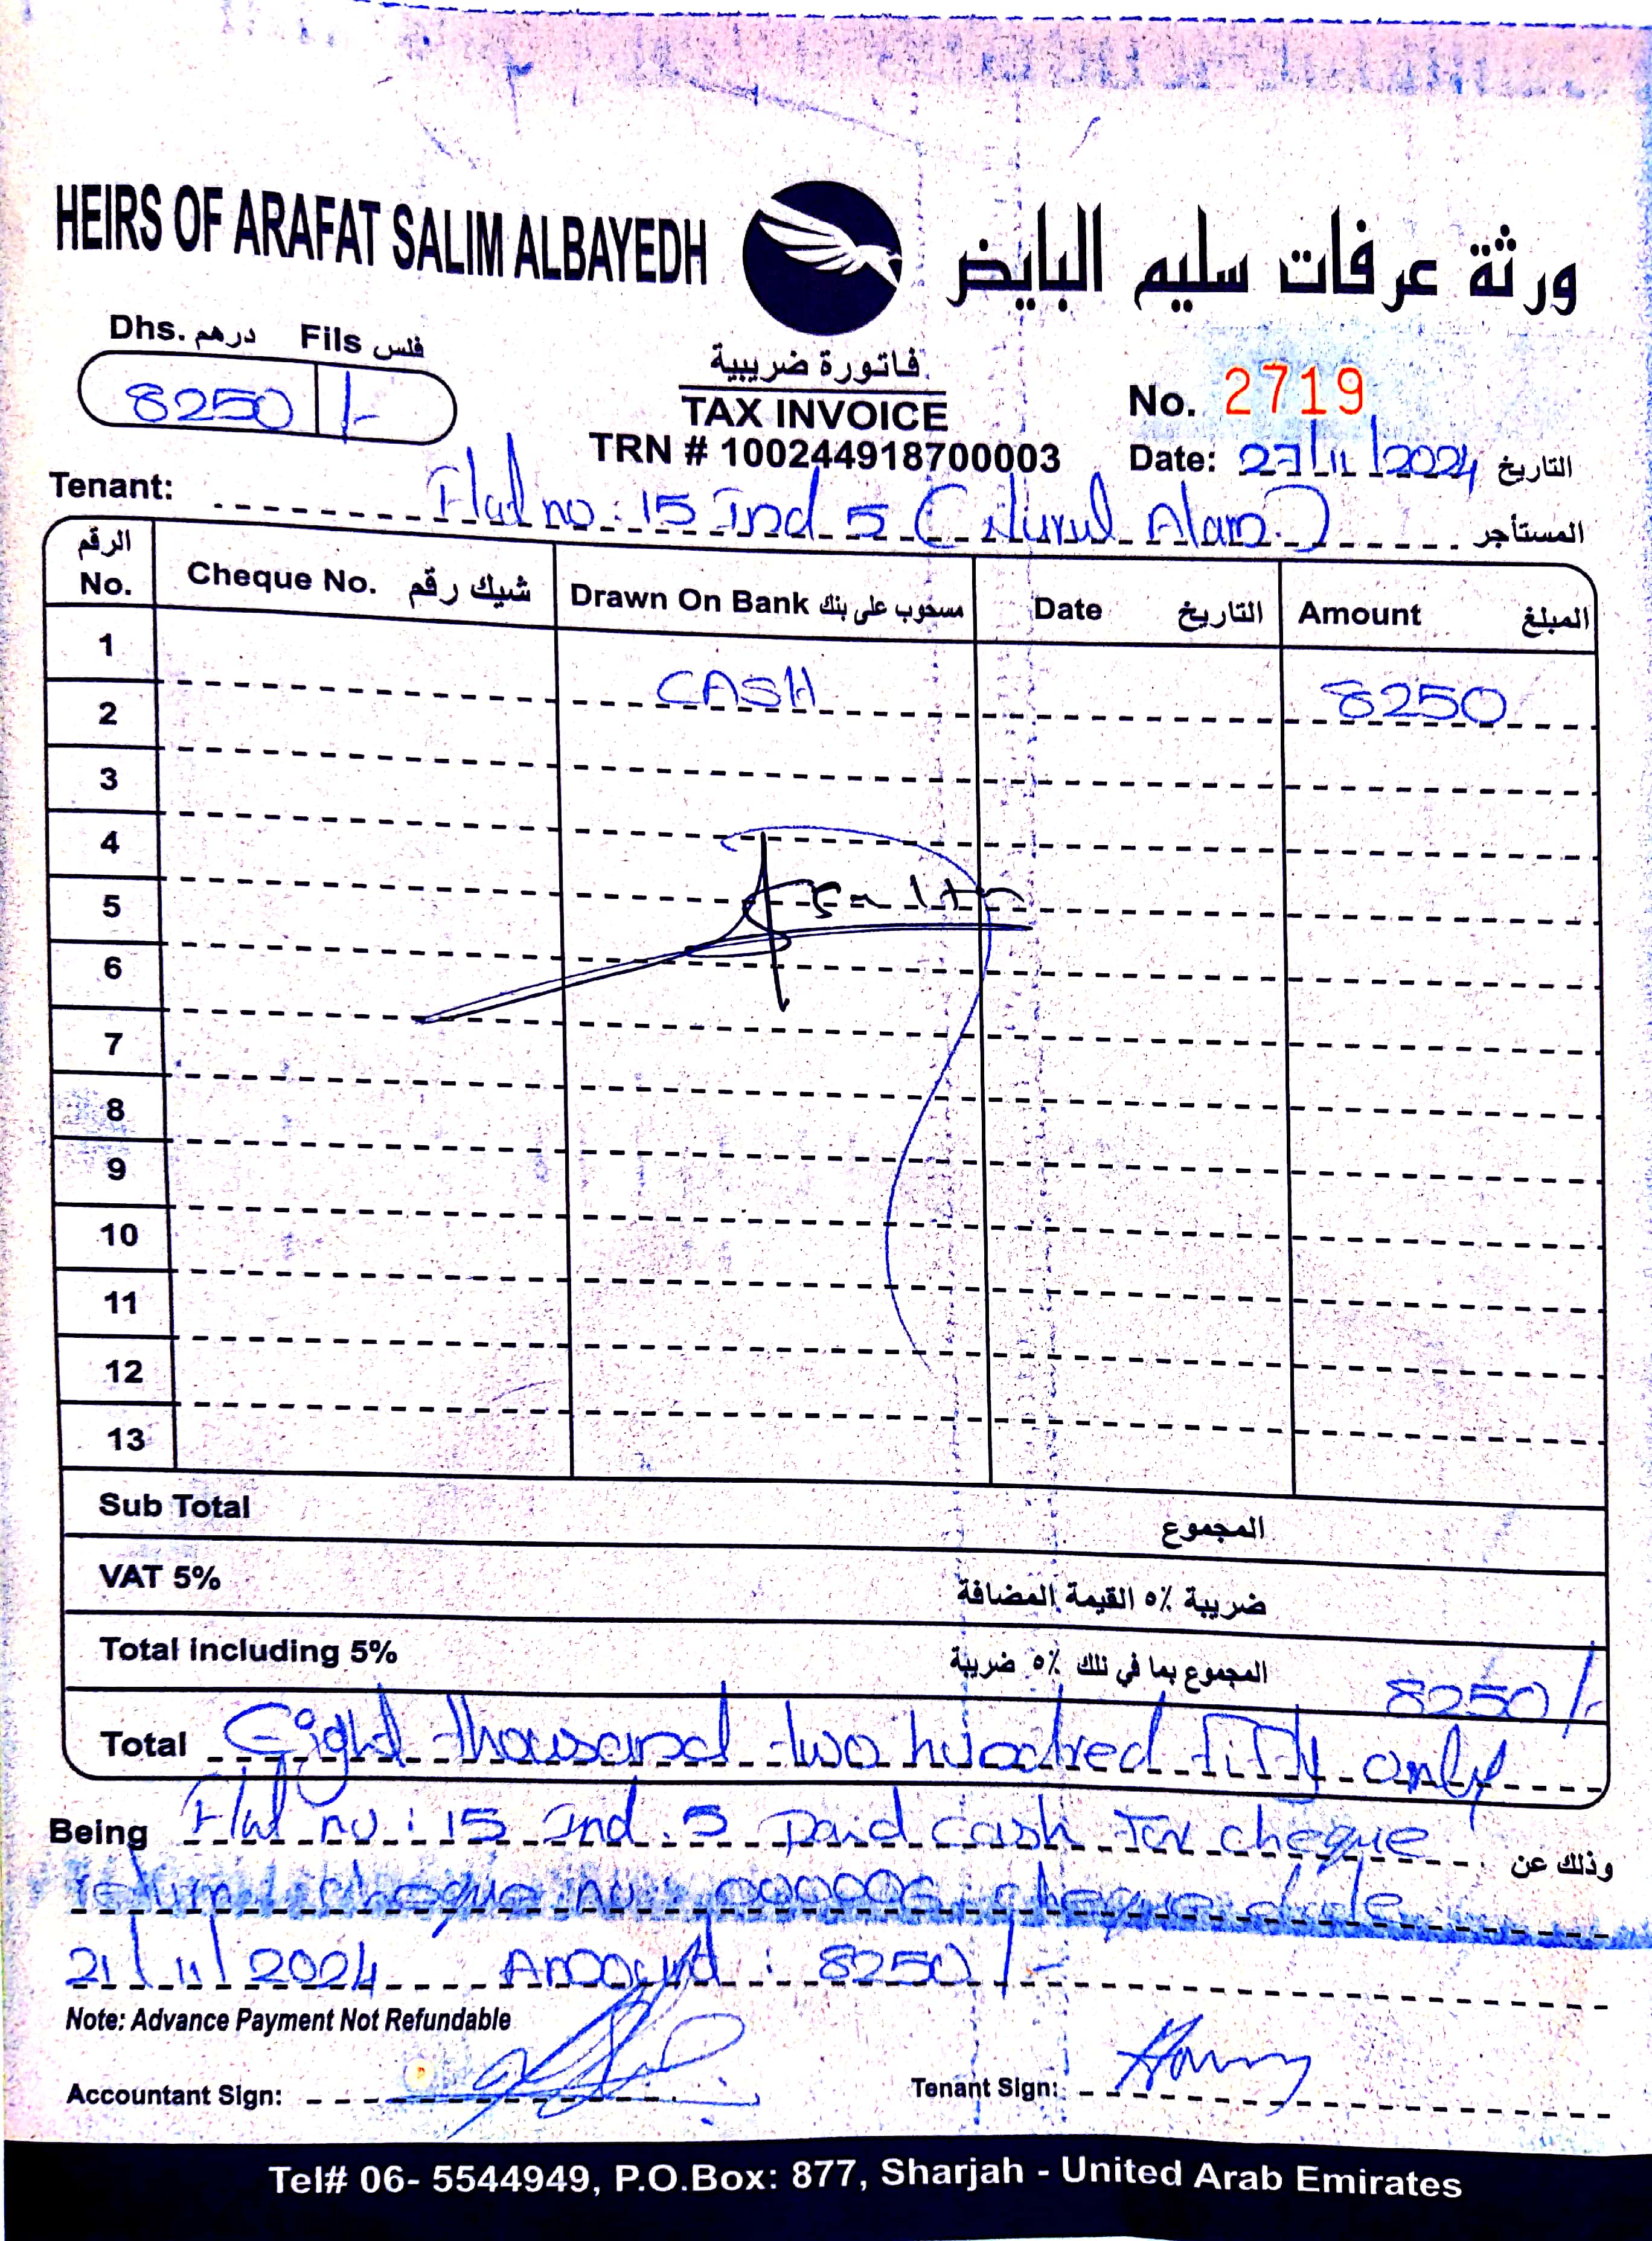 HEIRS OF ARAFAT SALIM ALBAYEDH ورثة عرفات سليم البايض
Dhs. درهم Fils فلس
8250 /-
فاتورة ضريبية
TAX INVOICE
TRN # 100244918700003
No. 2719
Date: 27/11/2024 التاريخ
Tenant: Flat no: 15 Ind 5 (Nurul Alam) المستأجر
الرقم No. Cheque No. شيك رقم Drawn On Bank مسحوب على بنك Date التاريخ Amount المبلغ
1
CASH 8250
2
3
4
5
6
7
8
9
10
11
12
13
Sub Total المجموع
VAT 5% ضريبة ٥٪ القيمة المضافة
Total including 5% المجموع بما في ذلك ٥٪ ضريبة 8250/-
Total Eight thousand two hundred fifty only
Being Flat no: 15 Ind. 5 Paid cash for cheque وذلك عن
return cheque no: 000006 cheque date
21/11/2024 Amount: 8250/-
Note: Advance Payment Not Refundable
Accountant Sign: Tenant Sign:
Tel# 06- 5544949, P.O.Box: 877, Sharjah - United Arab Emirates